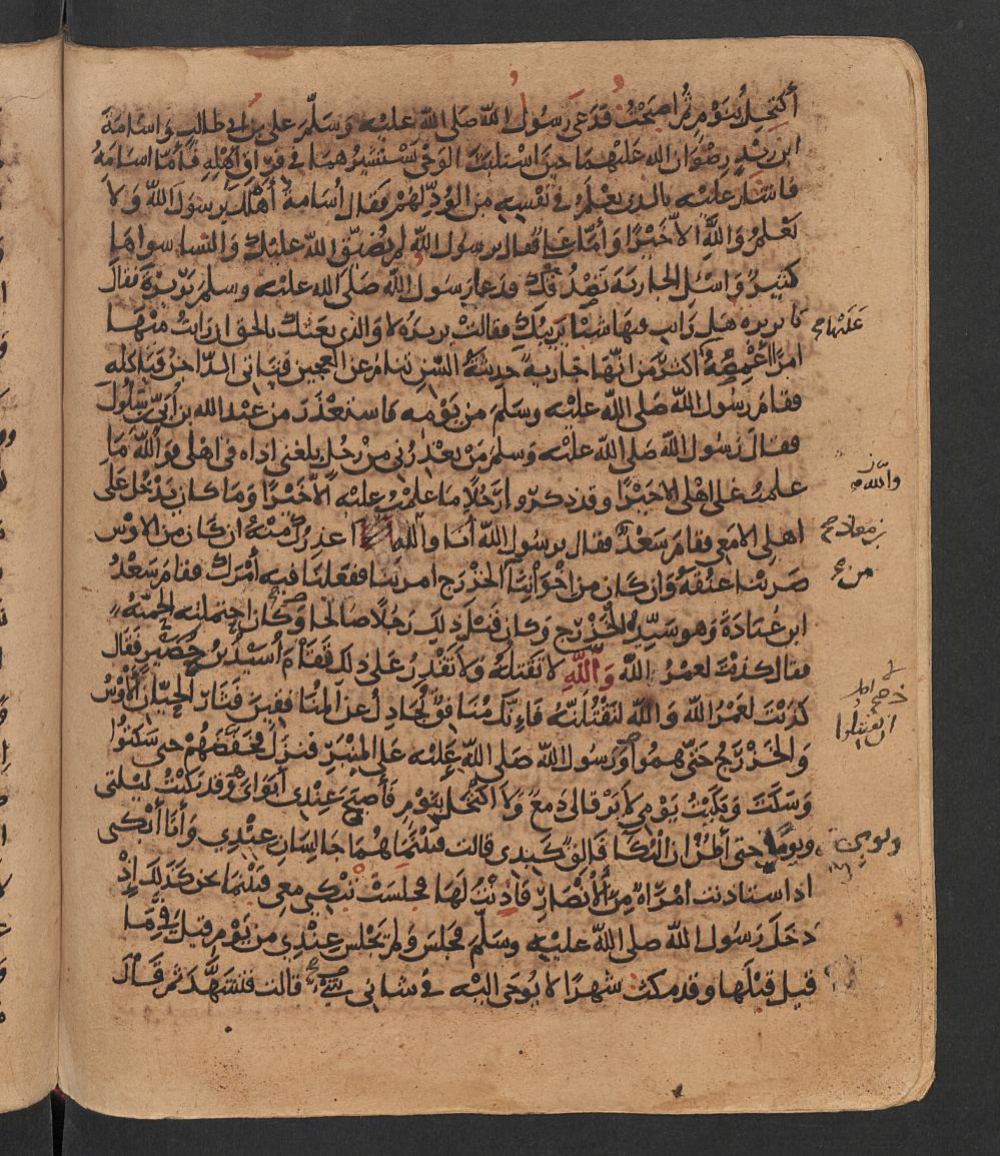 أكتحل بنوم ثم أصبحت فدعى رسول الله صلى الله عليه وسلم علي بن أبي طالب وأسامة
ابن زيد رضوان الله عليهما حين استلبث الوحي يستشيرهما في فراق أهله فأما أسامة
فأشار عليه بالذي يعلم في نفسه من الود لهم فقال أسامة أهلك يرسول الله ولا
نعلم والله إلا خيرا وأما علي فقال يرسول الله لم يضيق الله عليك والنسا سواها
كثير واسئل الجارية تصدقك فدعا رسول الله صلى الله عليه وسلم بريرة فقال
يا بريره هل رايت فيها شيا يريبك فقالت بريره لا والذي بعثك بالحق ان رايت منها
عليها صح
امرا أغمصه أكثر من انها جارية حديثة السن تنام عن العجين فياتي الداجن فياكله
فقام رسول الله صلى الله عليه وسلم من يومه فاستعذر من عبد الله بن أبي سلول
فقال رسول الله صلى الله عليه وسلم من يعذرني من رجل بلغني اذاه في اهلي فوالله ما
والله
علمت على اهلي الا خيرا وقد ذكروا رجلا ما علمت عليه الا خيرا وما كان يدخل على
اهلي الا معي فقام سعد فقال يرسول الله أنا والله اعذرك منه ان كان من الاوس
بن معاذ صح
ضربنا عنقه وان كان من اخواننا الخزرج امرتنا ففعلنا فيه أمرك فقام سعد
من
ابن عبادة وهو سيد الخزرج وكان قبل ذلك رجلا صالحا وكان احتملته الحمية
فقال كذبت لعمر الله والله لا تقتله ولا تقدر على ذلك فقام أسيد بن حضير فقال
كذبت لعمر الله والله لنقتلنه فإنك منافق تجادل عن المنافقين فثار الحيان الأوس
والخزرج حتى هموا ورسول الله صلى الله عليه على المنبر فنزل فخفضهم حتى سكتوا
ان يقتتلوا
وسكت وبكيت يومي لا يرقا لي دمع ولا اكتحل بنوم فأصبح عندي أبواي وقد بكيت ليلتي
ويوما حتى أظن ان البكا فالق كبدي قالت فبينما هما جالسان عندي وأنا أبكي
ويومي
اذ استاذنت امراة من الأنصار فأذنت لها فجلست تبكي معي فبينما نحن كذلك إذ
دخل رسول الله صلى الله عليه وسلم فجلس ولم يجلس عندي من يوم قيل في ما
قيل قبلها وقد مكث شهرا لا يوحى اليه في شاني شيء قالت فتشهد ثم قال